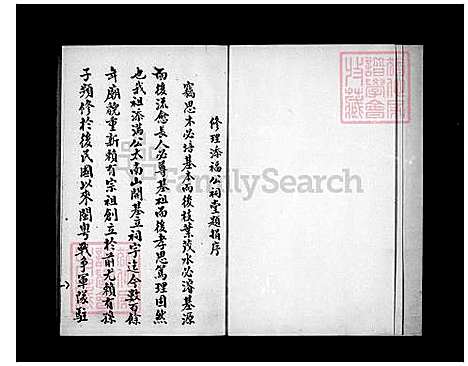 修理添福公祠堂題捐序
竊思木必培基本而後枝葉茂水必濬基源
而後流愈長人必尊基祖而後孝思篤理固然
也我祖添滿公太南山開基立祠宇迄今數百餘
年廟貌重新賴有宗祖創立於前尤賴有孫
子頻修於後民國以來閩粵戰爭軍隊駐
FamilySearch